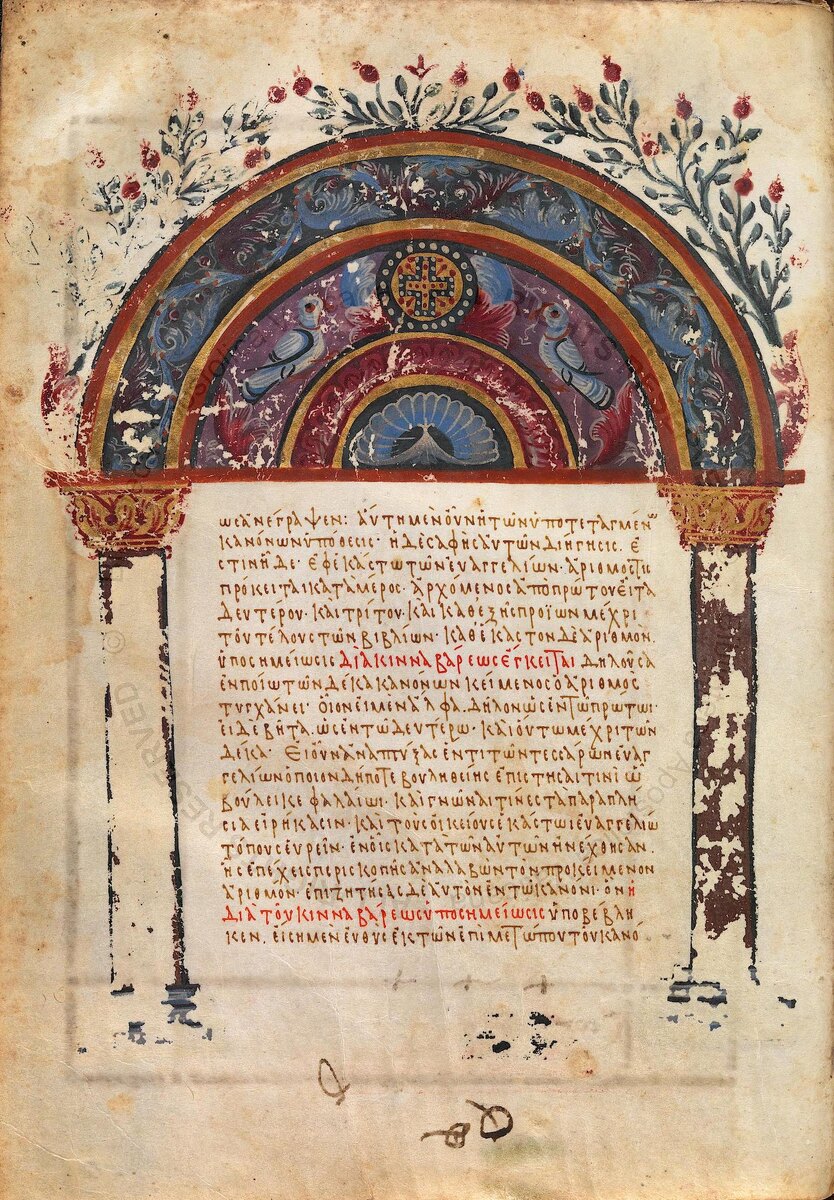 ὡς ἀνέγραψεν: αὕτη μὲν οὖν ἡ τῶν ὑποτεταγμέν
κανόνων ὑπόθεσις· ἡ δὲ σαφὴς αὐτῶν διήγησις. ἔ
στιν ἥδε· ἐφ ἑκάστω τῶν εὐαγγελίων ἀριθμός τις
πρόκειται κατὰ μέρος· ἀρχόμενος ἀπὸ πρώτου εἶτα
δευτέρου· καὶ τρίτου· καὶ καθεξῆς προϊὼν μέχρι
τοῦ τέλους τῶν βιβλίων· καθ ἕκαστον δὲ ἀριθμὸν
ὑποσημείωσις διὰ κινναβάρεως ἔγκειται δηλοῦσα
ἐν ποίω τῶν δέκα κανόνων κείμενος ὁ ἀριθμὸς
τυγχάνει· οἷον εἰ μὲν α δῆλον ὡς ἐν τῶ πρώτωι·
εἰ δὲ βῆτα· ὡς ἐν τῶ δευτέρω· καὶ οὕτω μέχρι τῶν
δέκα· εἰ οὖν ἀναπτύξας ἕν τι τῶν τεσσάρων εὐαγ
γελίων ὁποῖον δήποτε βουληθείης ἐπιστῆσαί τινι ὧ
βούλει κεφαλαίωι· καὶ γνῶναι τίνες τὰ παραπλή
σια εἰρήκασιν· καὶ τοὺς οἰκείους ἑκάστωι εὐαγγελίω
τόπους εὑρεῖν· ἐν οἷς κατὰ τῶν αὐτῶν ἠνέχθησαν.
ἧς ἐπέχεις περικοπῆς ἀναλαβὼν τὸν προκείμενον
ἀριθμὸν· ἐπιζητήσας δὲ αὐτὸν ἐν τῶ κανόνι· ὃν ἡ
διὰ τοῦ κινναβάρεως ὑποσημείωσις ὑποβέβλη
κεν. εἴσῃ μὲν εὐθὺς ἐκ τῶν ἐπὶ μετώπου τοῦ κανό